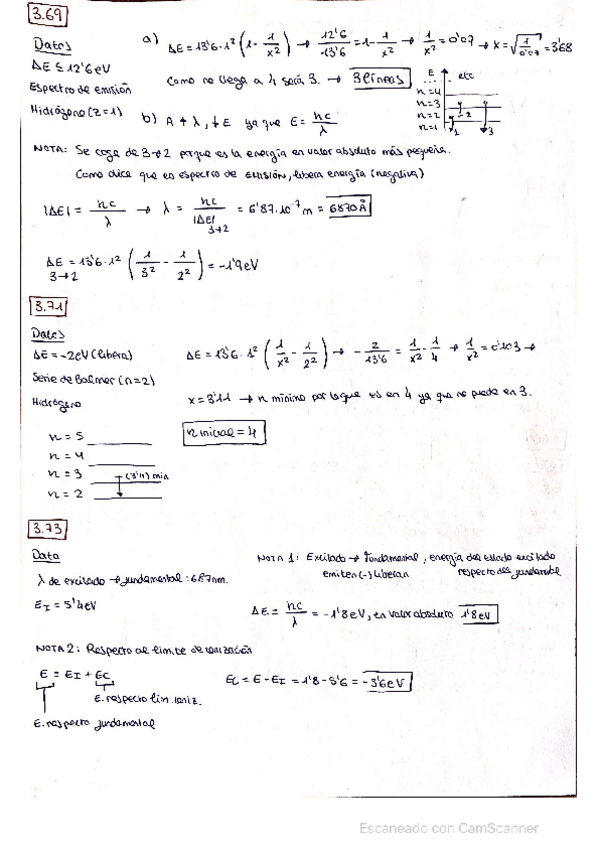 3.69
Datos
ΔE ≤ 12'6 eV
Espectro de emisión
Hidrógeno (Z=1)
a) ΔE = 13'6 · 1² (1 - 1/x²) → 12'6/-13'6 = 1 - 1/x² → 1/x² = 0'07 → x = √(1/0'07) = 3'68
Como no llega a 4 será 3. → 3 líneas
E etc
n=4
n=3
n=2
n=1
1 2 3
b) A ↑ λ, ↓ E ya que E = hc/λ
NOTA: Se coge de 3→2 porque es la energía en valor absoluto más pequeña.
Como dice que es espectro de EMISIÓN, libera energía (negativa)
|ΔE| = hc/λ → λ = hc/|ΔE| 3→2 = 6'87·10⁻⁷ m = 6870 Å
ΔE 3→2 = 13'6 · 1² (1/3² - 1/2²) = -1'9 eV
3.71
Datos
ΔE = -2eV (libera)
Serie de Balmer (n=2)
Hidrógeno
ΔE = 13'6 · 1² (1/x² - 1/2²) → - 2/13'6 = 1/x² - 1/4 → 1/x² = 0'103 →
x = 3'11 → n mínimo por lo que es en 4 ya que no puede en 3.
n inicial = 4
n = 5
n = 4
n = 3 (3'11) min
n = 2
3.73
Dato
λ de excitado → fundamental: 687nm.
E_I = 5'4eV
NOTA 1: Excitado → Fundamental, energía del estado excitado
emiten (-) liberan respecto del fundamental
ΔE = hc/λ = -1'8 eV, en valor absoluto 1'8 eV
NOTA 2: Respecto al límite de ionización
E = E_I + E_C
E. respecto lim. ioniz.
E. respecto fundamental
E_C = E - E_I = 1'8 - 5'6 = -3'6 eV
Escaneado con CamScanner